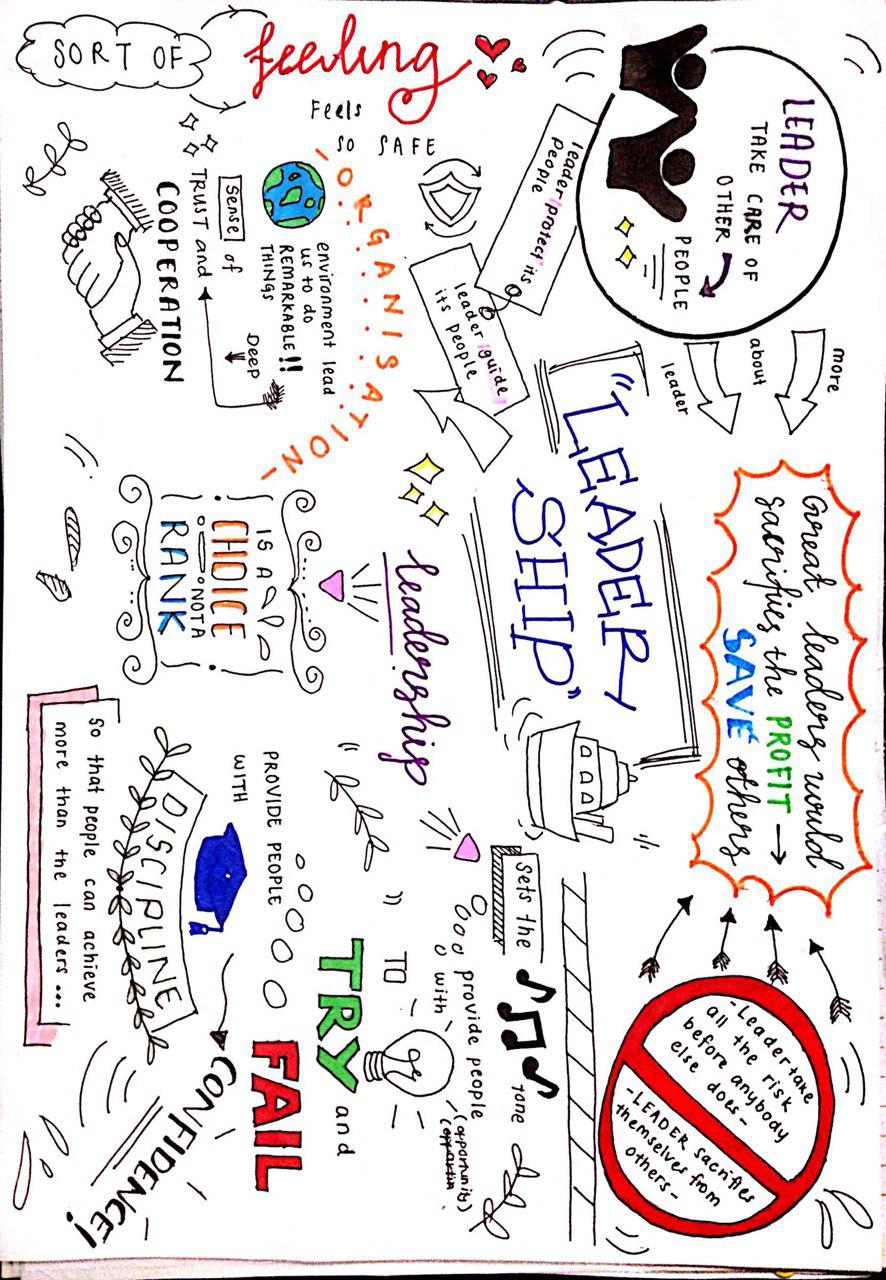 LEADER
TAKE CARE OF
OTHER
PEOPLE
leader protect its
people
leader guide
its people
more
about
leader
Great leaders would
sacrifies the PROFIT →
SAVE others
-Leader take
all the risk
before anybody
else does-
-LEADER sacrifies
themselves from
others-
"LEADER
SHIP"
SORT OF
feeling
Feels
SO SAFE
-ORGANISATION-
environment lead
us to do
REMARKABLE!!
THINGS
DEEP
Sense of
TRUST and
COOPERATION
leadership
IS A
CHOICE
NOT A
RANK
Sets the
TONE
provide people
with
(opportunity)
TO
TRY and
FAIL
PROVIDE PEOPLE
WITH
DISCIPLINE
CONFIDENCE!
So that people can achieve
more than the leaders...